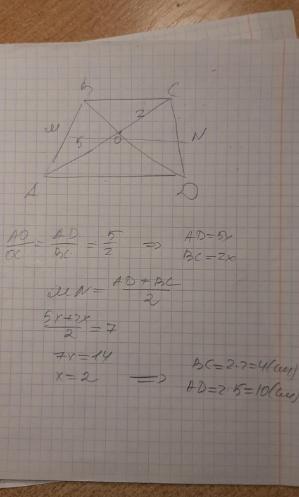 B C
2
M N
5 O
A D
AO/OC = AD/BC = 5/2 => AD=5x
BC=2x
MN = AD+BC/2
5x+2x/2 = 7
7x=14
x=2 => BC=2·2=4(см)
AD=2·5=10(см)